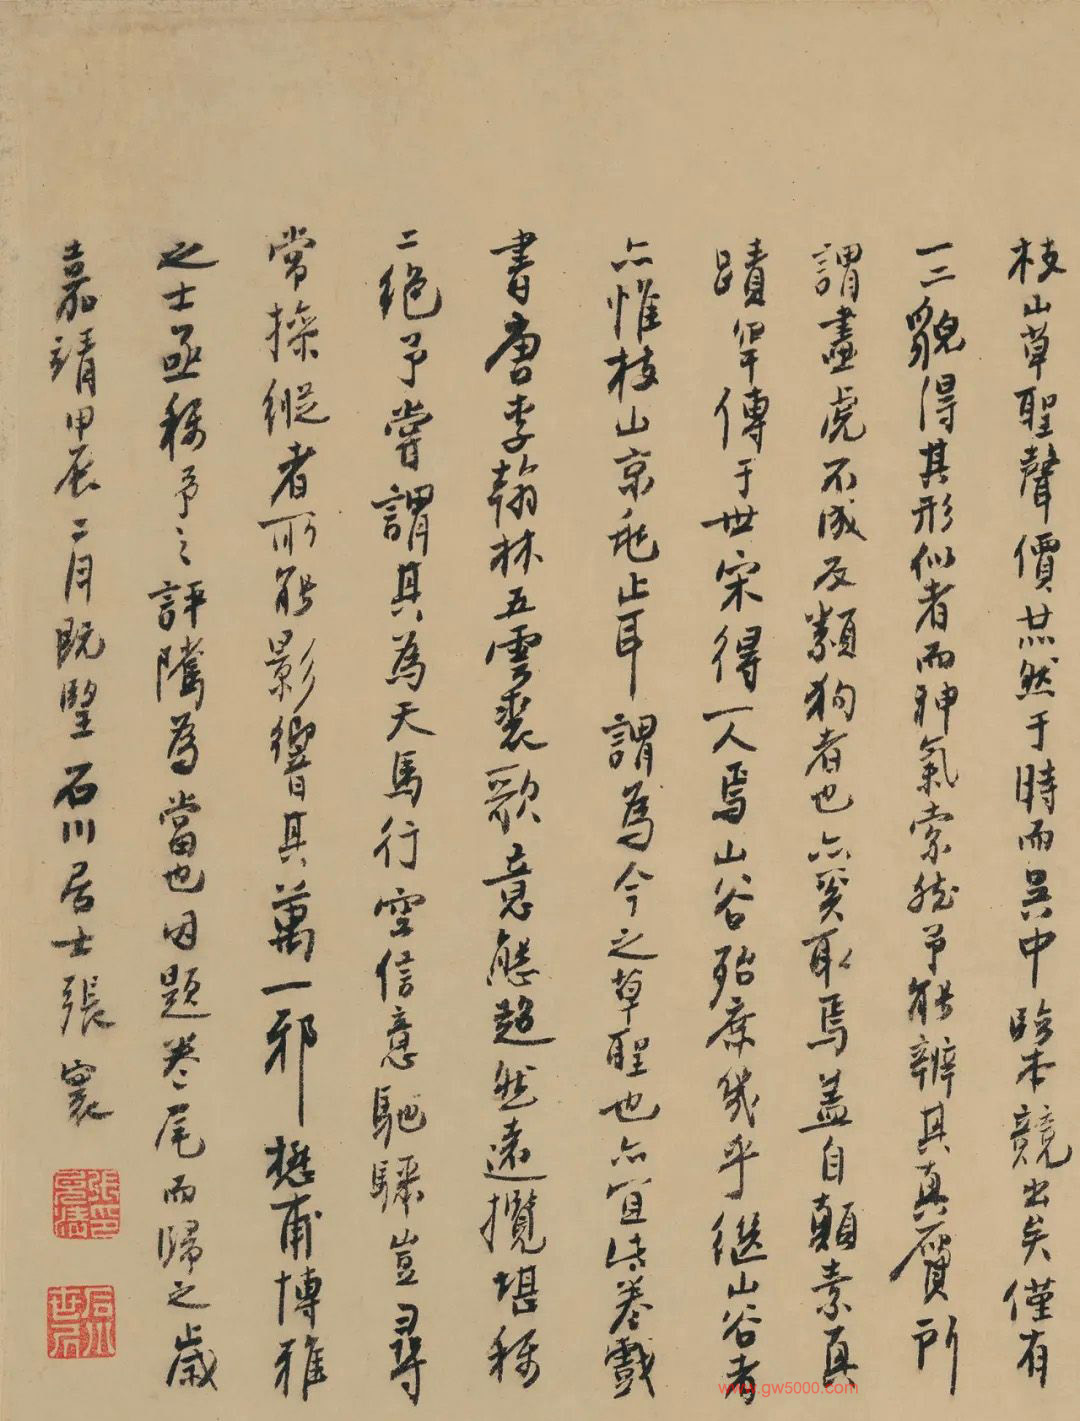 枝山草聖聲價燕然于時而吳中臨本競出矣僅有
一二貌得其形似者而神氣索然予能辨其真贗所
謂畫虎不成反類狗者也亦奚取焉盖自顛素真
蹟罕傳于世宋得一人焉山谷殆庶幾乎繼山谷者
亦惟枝山京兆止耳謂為今之草聖也亦宜此卷戲
書唐李翰林五雲裘歌意態超然遠攬堪稱
二絶予嘗謂其為天馬行空信意馳驟豈尋
常操縱者所能影響其萬一邪懋甫博雅
之士亟稱予之評隲為當也因題卷尾而歸之歲
嘉靖甲辰二月既望石川居士張寰
www.gw5000.com